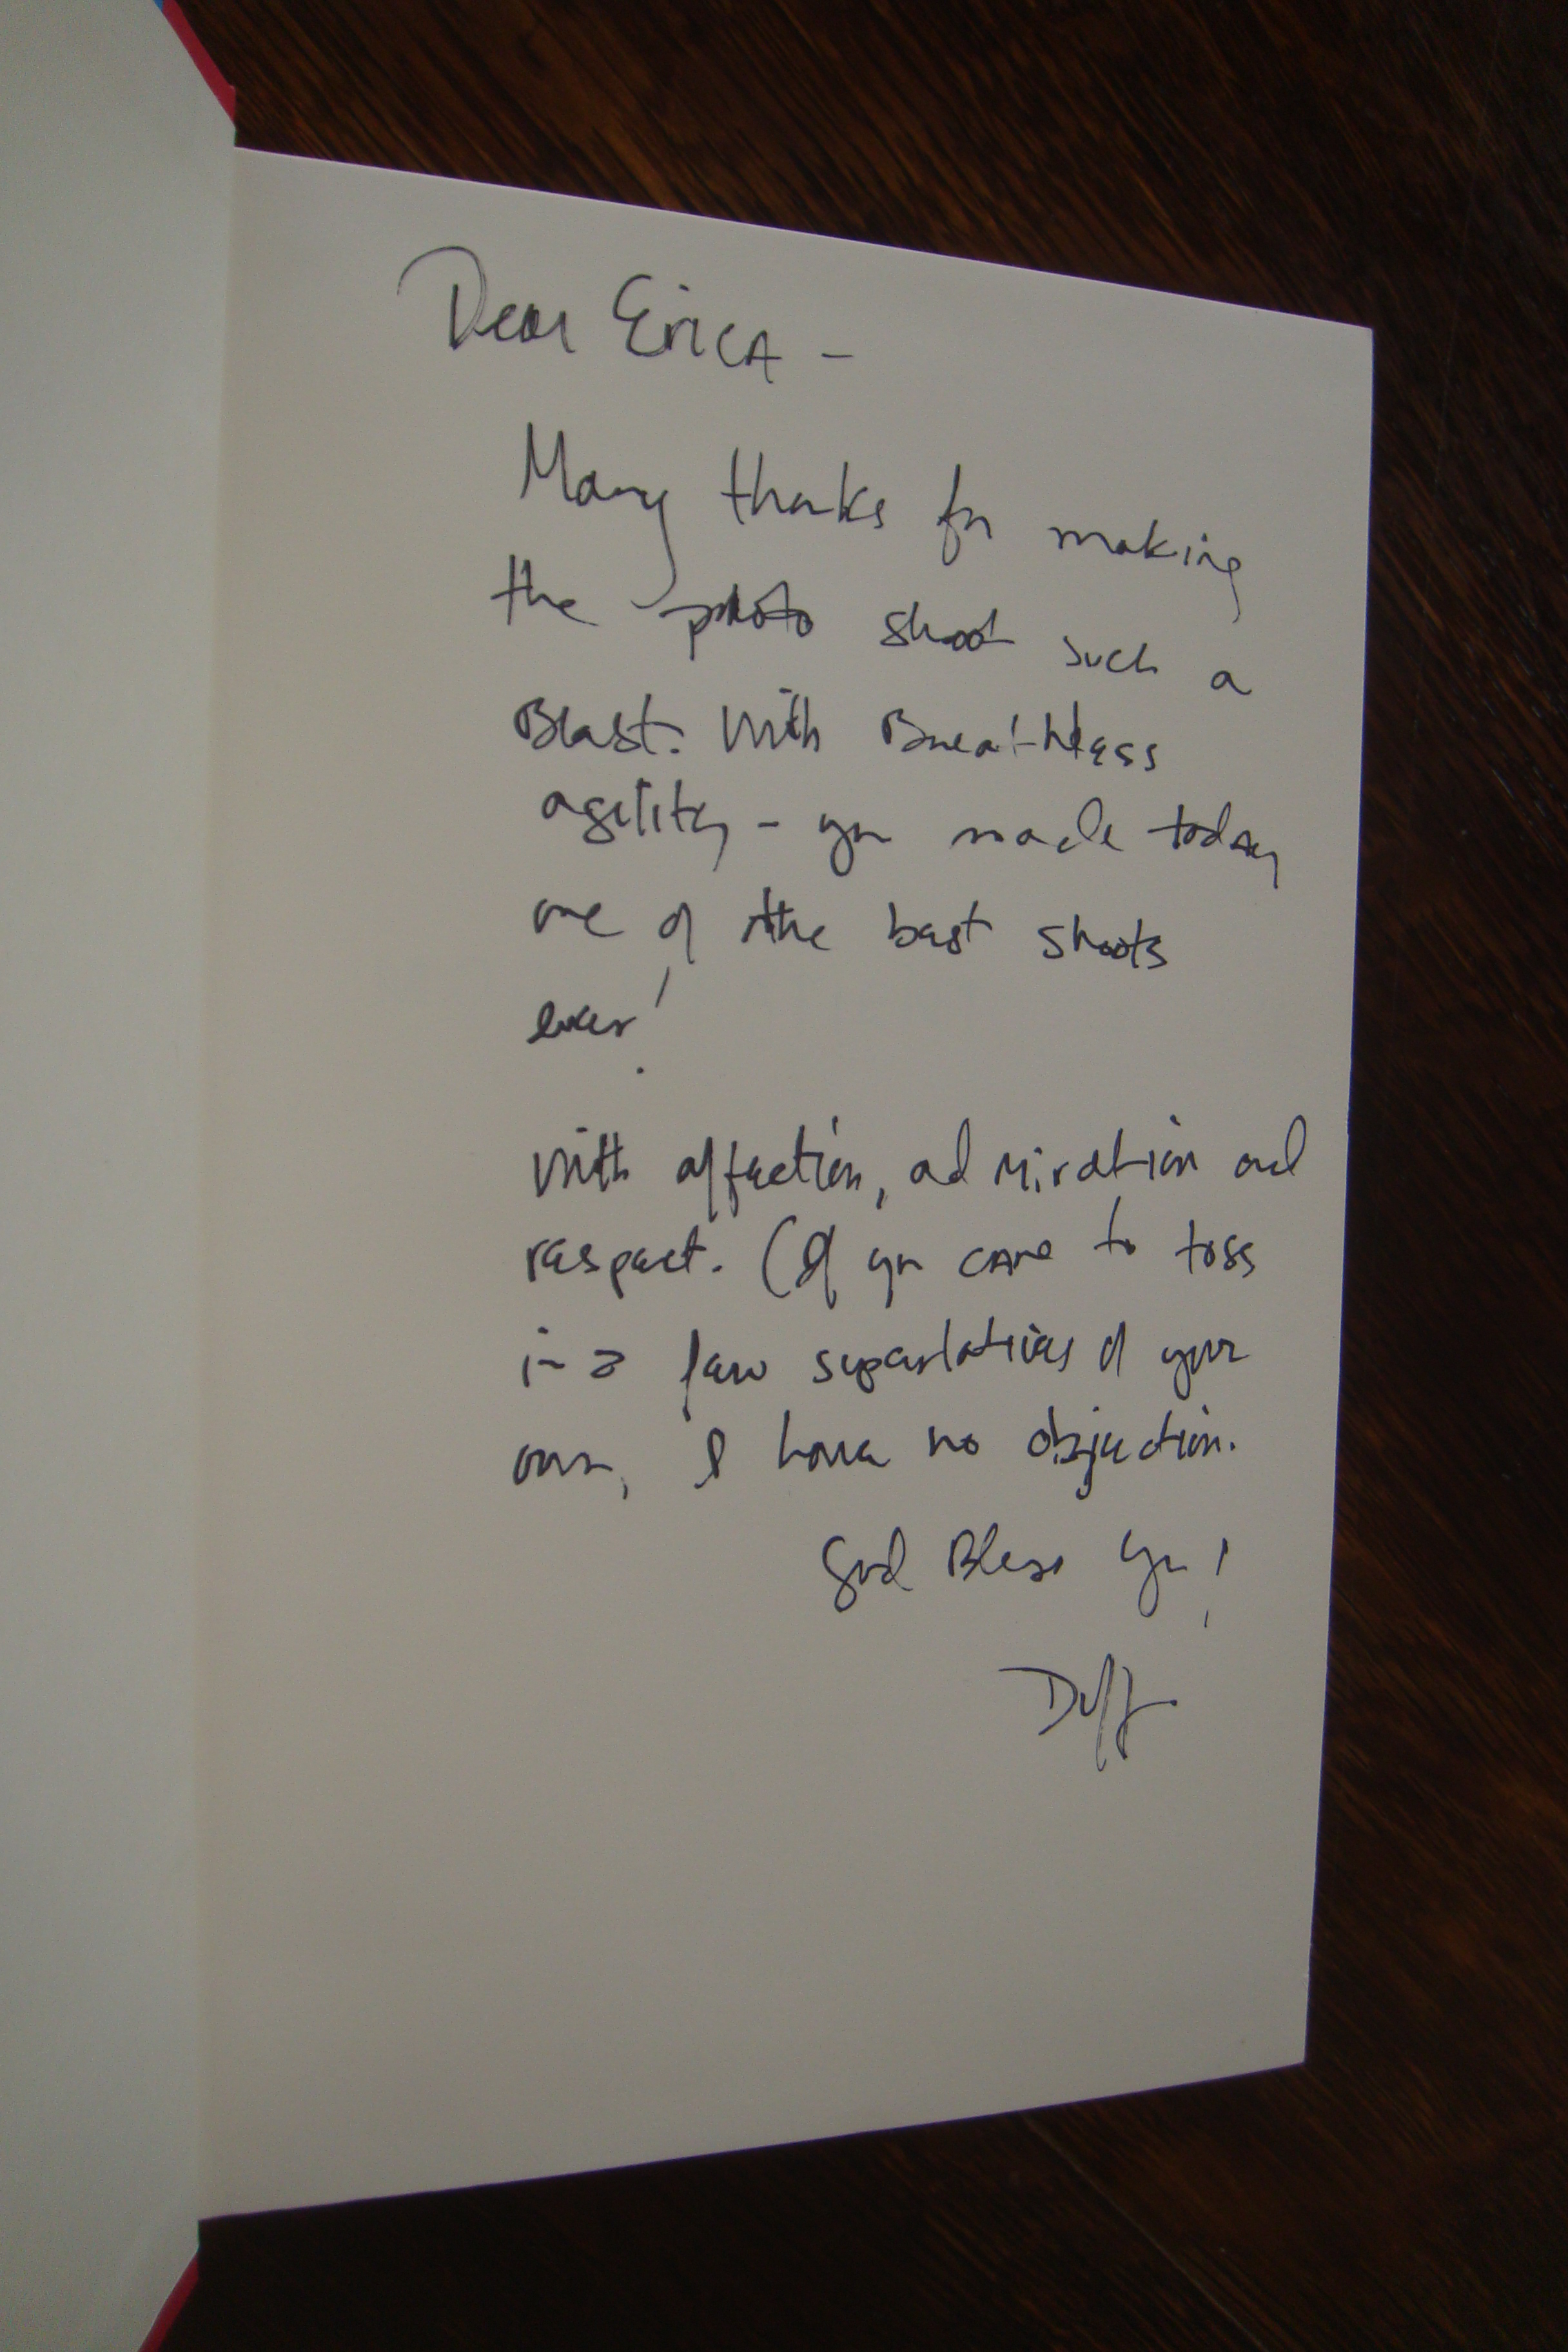 Dear Erica -
Many thanks for making
the photo shoot such a
Blast. With Breathless
agility - you made today
one of the best shoots
ever!
With affection, admiration and
respect. (If you care to toss
in a few superlatives of your
own, I have no objection.
God Bless you!
Duff